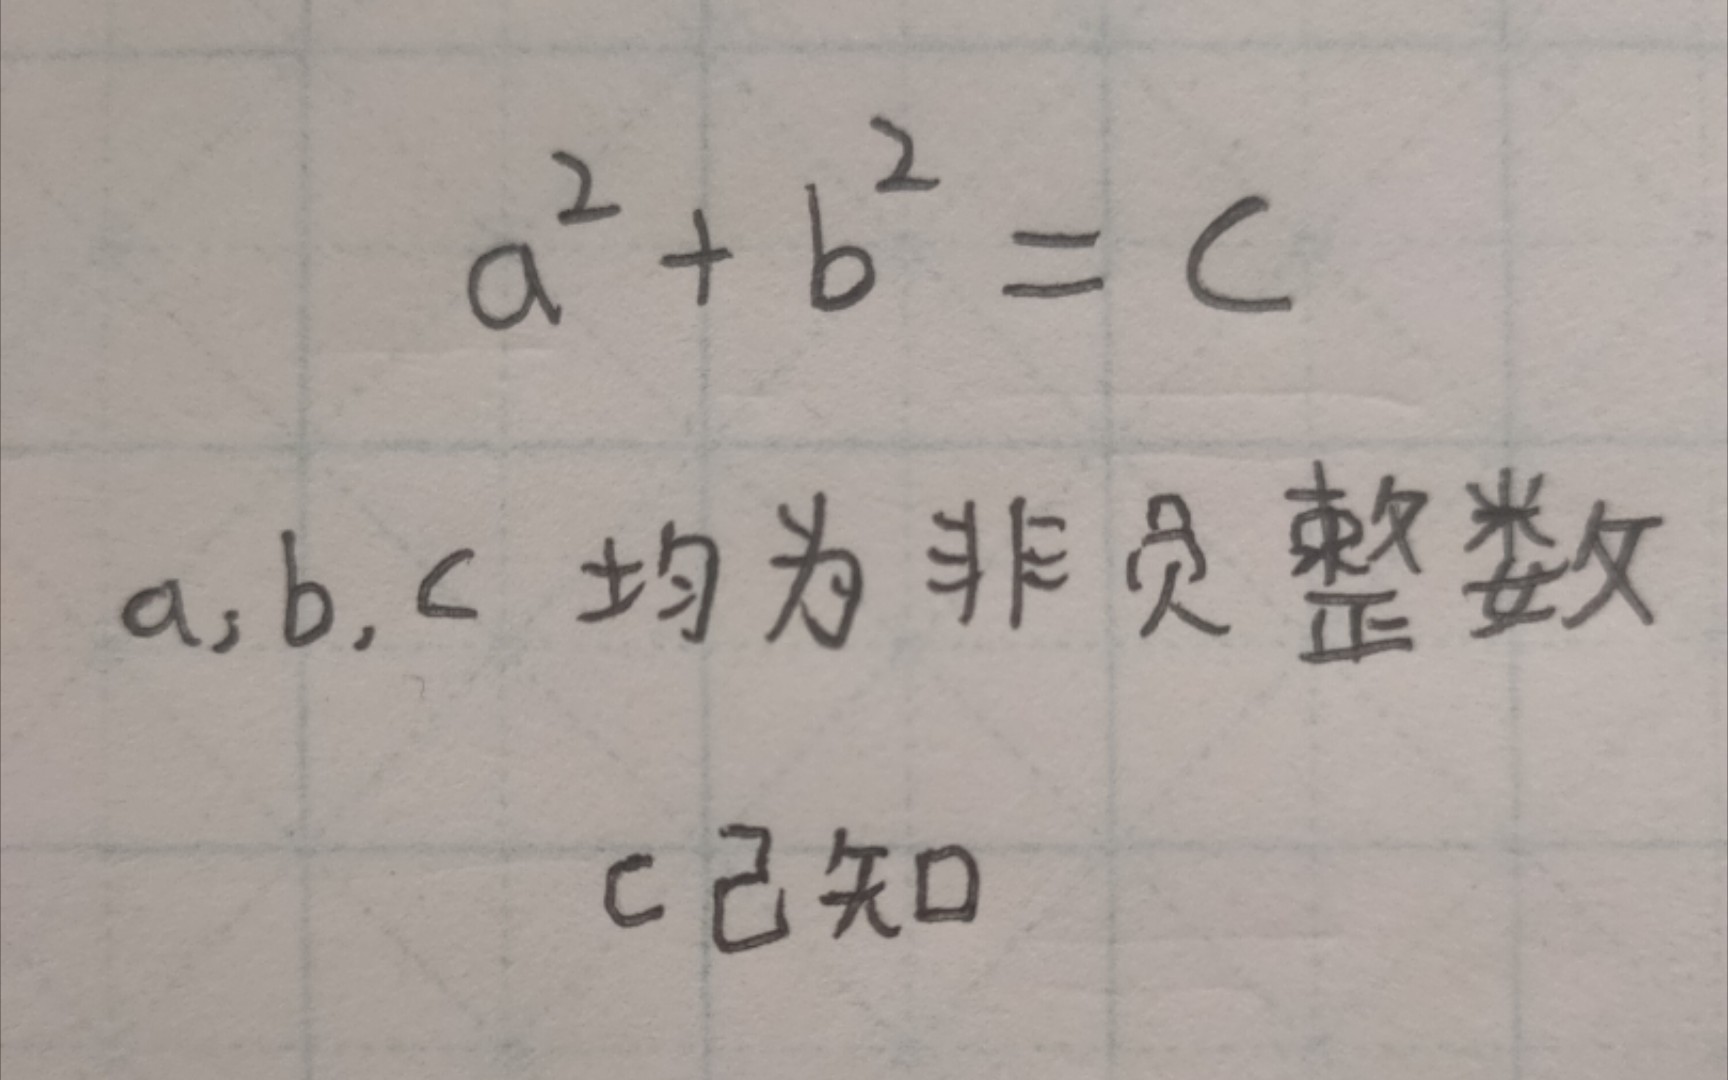 a² + b² = c
a, b, c 均为非负整数
c已知